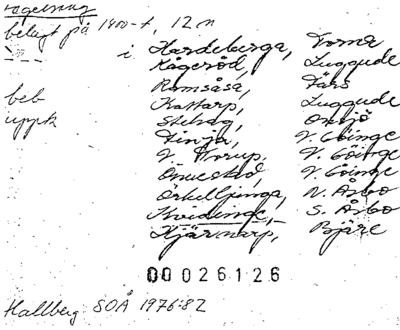 belagt på 1400-t, 12 m
i Hardeberga, Torna
Kågeröd, Luggude
Ramsåsa, Färs
beb Kattarp, Luggude
uppk Stehag, Onsjö
Finja, V. Göinge
V. Torup, V. Göinge
Önnestad, V. Göinge
Örkelljunga, N. Åsbo
Kvidinge, S. Åsbo
Hjärnarp, Bjäre
00026126
Hallberg SOÅ 1976:82